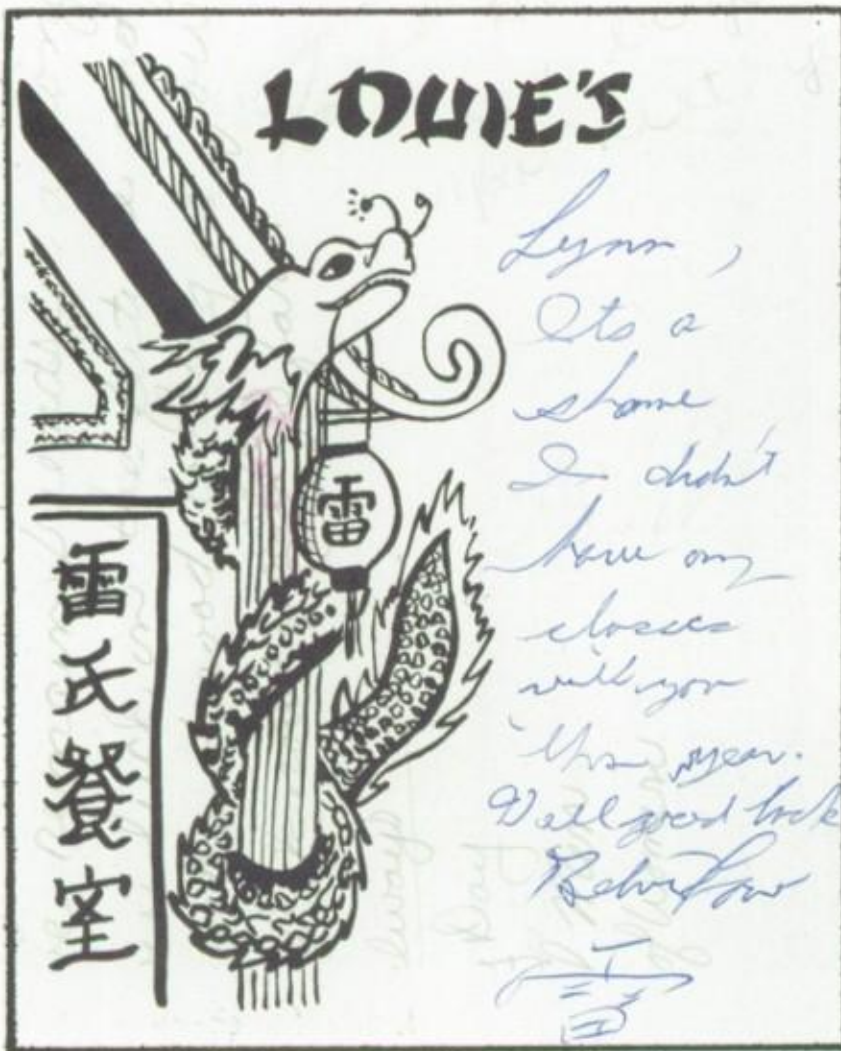 LOUIE'S
雷
雷氏餐室
Lynn,
Its a
shame
I didn't
have any
classes
with you
this year.
Well good luck
雷